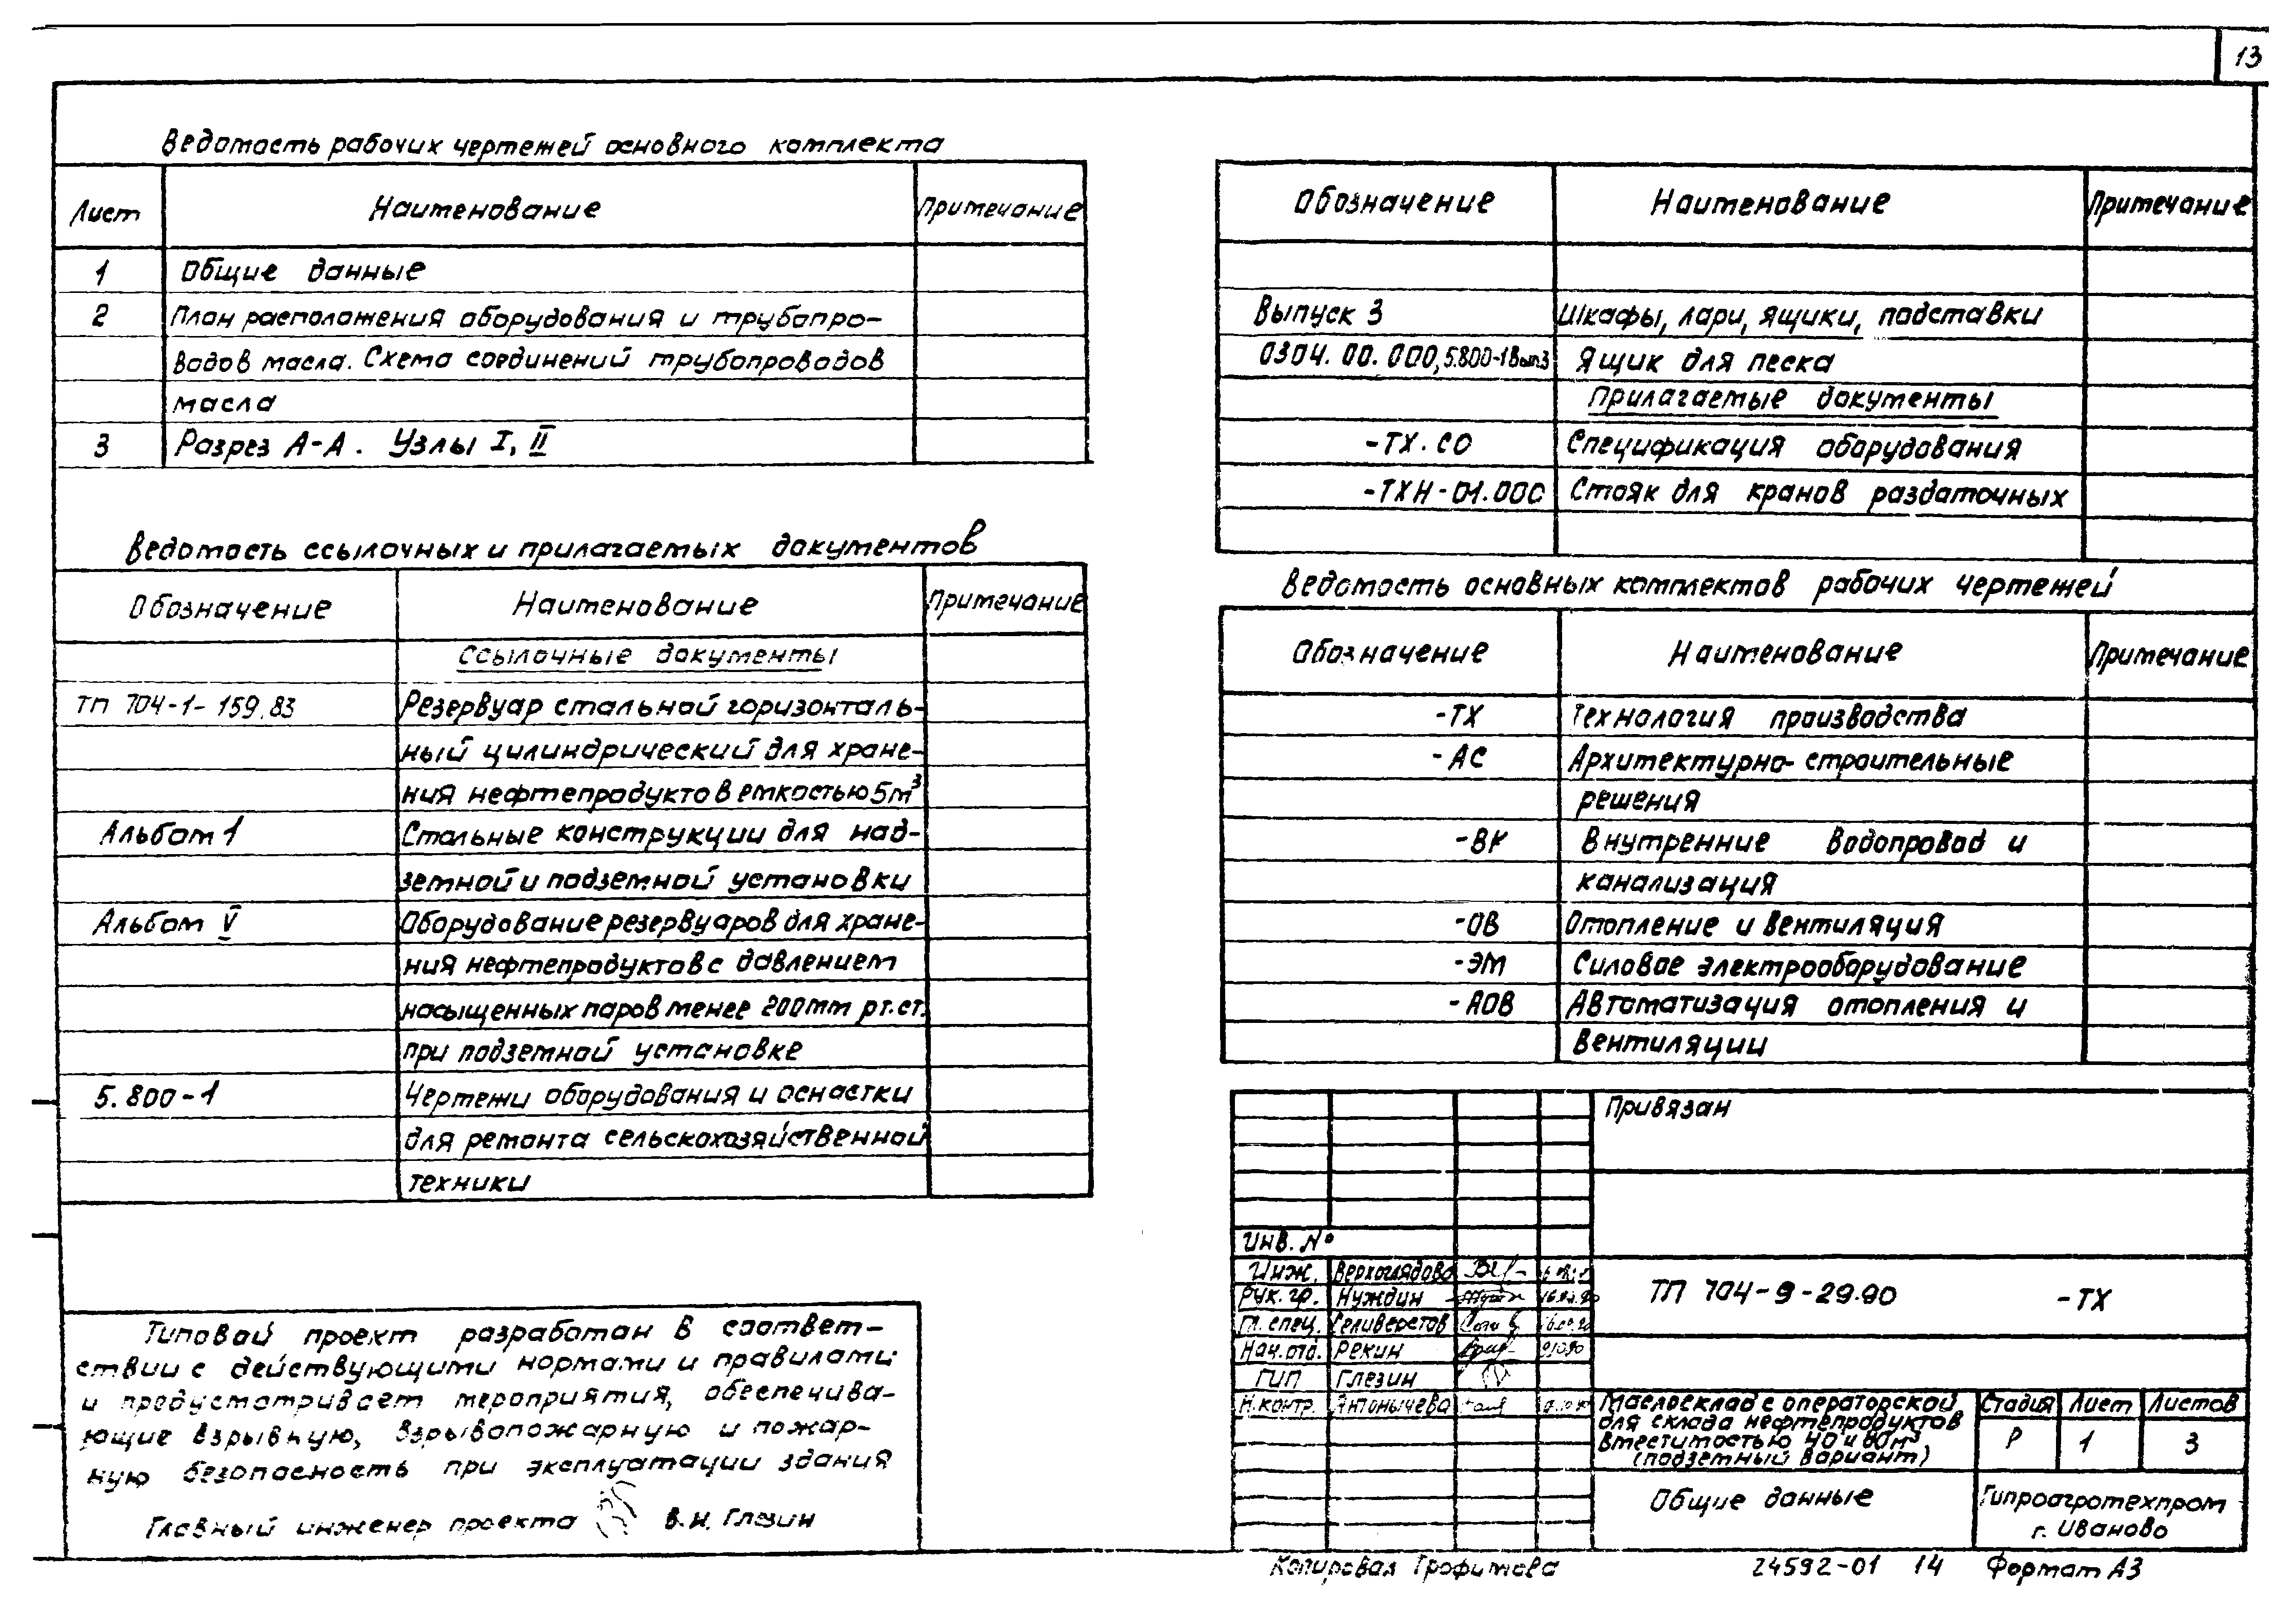 13
Ведомость рабочих чертежей основного комплекта
Лист Наименование Примечание
1 Общие данные
2 План расположения оборудования и трубопро-
водов масла. Схема соединений трубопроводов
масла
3 Разрез А-А. Узлы I, II
Ведомость ссылочных и прилагаемых документов
Обозначение Наименование Примечание
Ссылочные документы
ТП 704-1-159.83 Резервуар стальной горизонталь-
ный цилиндрический для хране-
ния нефтепродуктов емкостью 5м³
Альбом 1 Стальные конструкции для над-
земной и подземной установки
Альбом V Оборудование резервуаров для хране-
ния нефтепродуктов с давлением
насыщенных паров менее 200мм рт.ст.
при подземной установке
5.800-1 Чертежи оборудования и оснастки
для ремонта сельскохозяйственной
техники
Типовой проект разработан в соответ-
ствии с действующими нормами и правилами
и предусматривает мероприятия, обеспечива-
ющие взрывную, взрывопожарную и пожар-
ную безопасность при эксплуатации здания
Главный инженер проекта В.Н. Глезин
Обозначение Наименование Примечание
Выпуск 3 Шкафы, лари, ящики, подставки
0304.00.000, 5.800-1 Вып.3 Ящик для песка
Прилагаемые документы
-ТХ.СО Спецификация оборудования
-ТХН-01.000 Стояк для кранов раздаточных
Ведомость основных комплектов рабочих чертежей
Обозначение Наименование Примечание
-ТХ Технология производства
-АС Архитектурно-строительные
решения
-ВК Внутренние водопровод и
канализация
-ОВ Отопление и вентиляция
-ЭМ Силовое электрооборудование
-АОВ Автоматизация отопления и
вентиляции
Привязан
Инв. №
Инж. Верхоглядова
Рук. гр. Нуждин
Гл. спец. Селиверстов
Нач. отд. Рекин
ГИП Глезин
Н.контр. Антонычева
ТП 704-9-29.90 -ТХ
Маслосклад с операторской
для склада нефтепродуктов
вместимостью 40 и 80м³
(подземный вариант)
Стадия Лист Листов
Р 1 3
Общие данные
Гипроагротехпром
г. Иваново
Копировал Трофимова 24592-01 14 Формат А3